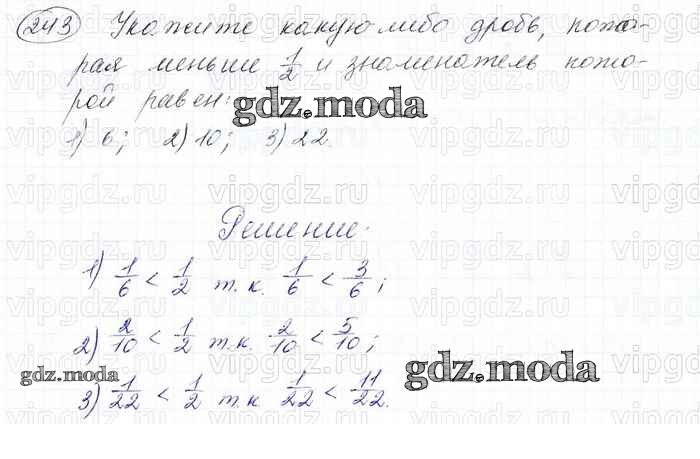 243 Укажите какую-либо дробь, кото-
рая меньше 1/2 и знаменатель кото-
рой равен:
gdz.moda
1) 6; 2) 10; 3) 22.
vipgdz.ru vipgdz.ru vipgdz.ru vipgdz.ru
Решение:
1) 1/6 < 1/2 т.к. 1/6 < 3/6;
2) 2/10 < 1/2 т.к. 2/10 < 5/10;
gdz.moda gdz.moda
3) 1/22 < 1/2 т.к. 1/22 < 11/22.